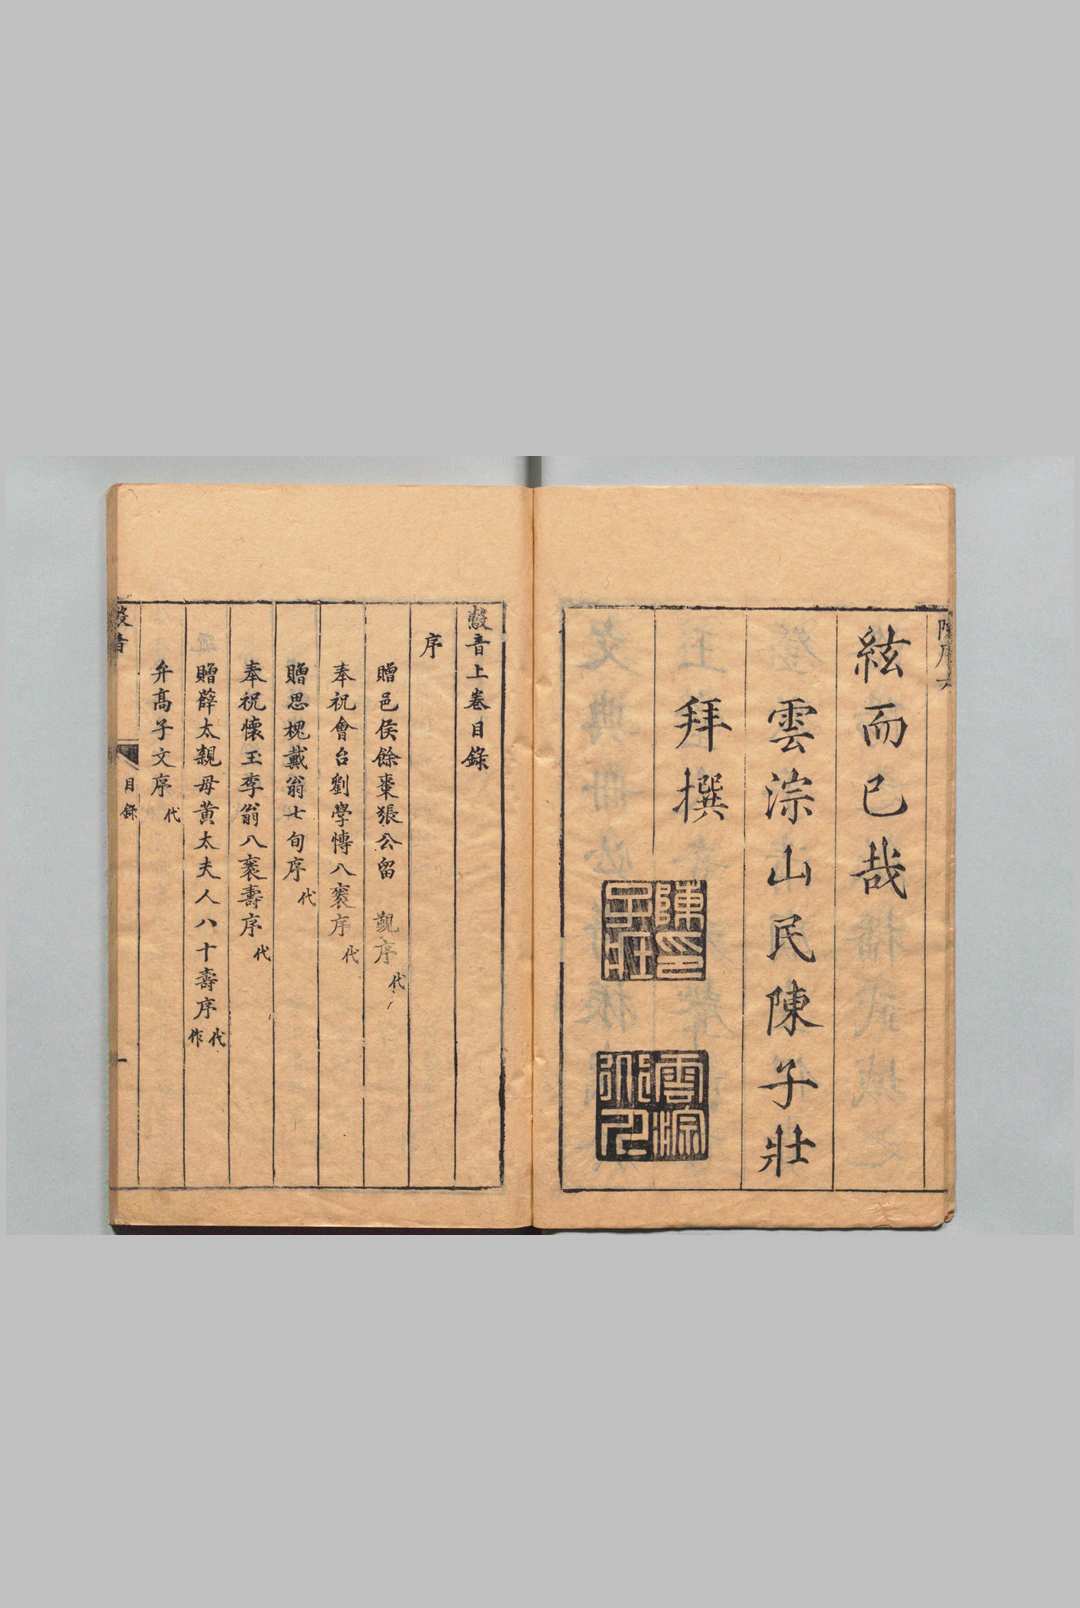 絃而已哉
雲淙山民陳子壯
拜撰
陳印子壯
雲淙
鷇音上卷目錄
序
贈邑侯餘棗張公留　覲序代
奉祝會台劉學博八袠序代
贈思槐戴翁七旬序代
奉祝懷玉李翁八袠壽序代
贈薛太親母黃太夫人八十壽序代作
弁高子文序代
目錄
一